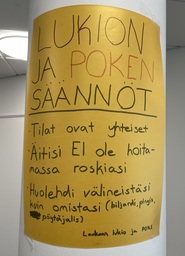 LUKION
JA POKEN
SÄÄNNÖT
· Tilat ovat yhteiset
· Äitisi EI ole hoita-
massa roskiasi
· Huolehdi välineistäsi
kuin omistasi (biljardi, pingis,
pöytäjalis)
Laukaan lukio ja POKE